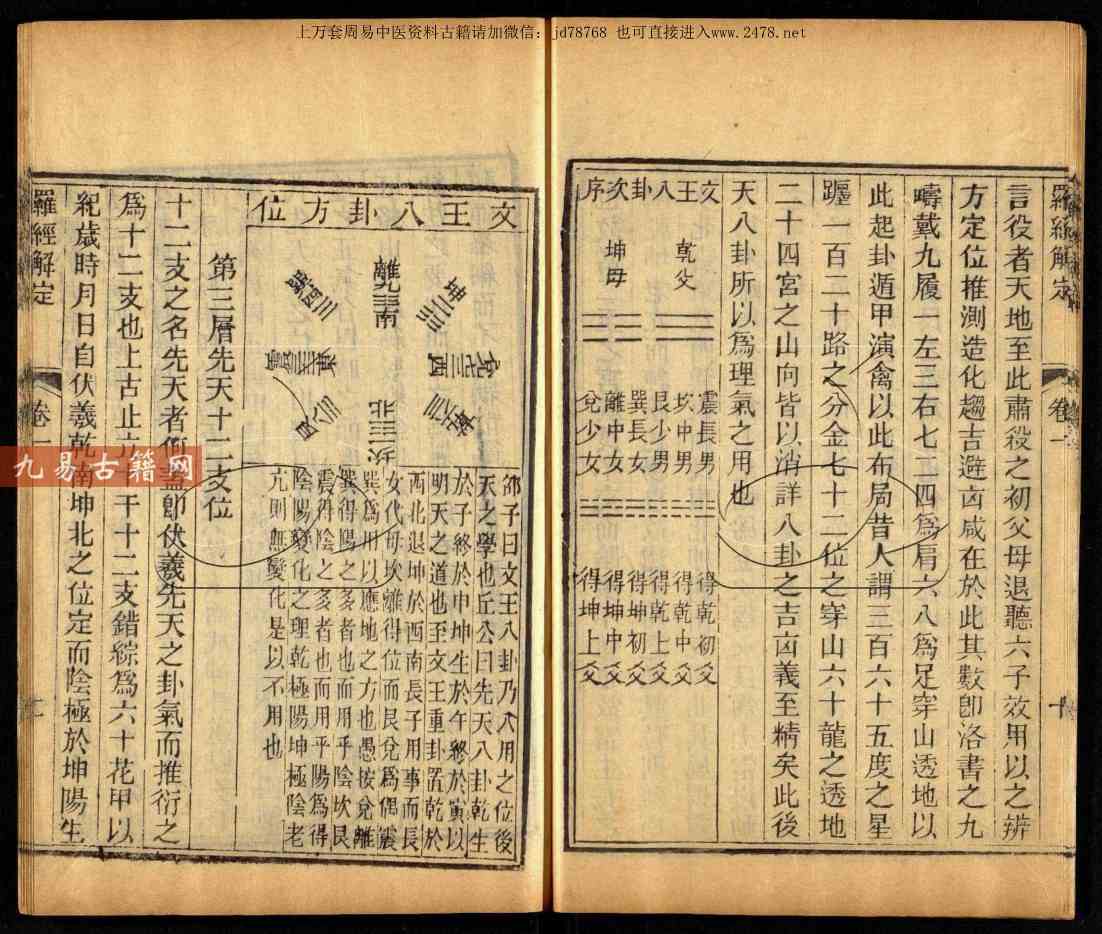 上万套周易中医资料古籍请加微信：jd78768 也可直接进入www.2478.net
羅經解定
卷一
十
言役者天地至此肅殺之初父母退聽六子效用以之辨
方定位推測造化趨吉避凶咸在於此其數即洛書之九
疇戴九履一左三右七二四爲肩六八爲足穿山透地以
此起卦遁甲演禽以此布局昔人謂三百六十五度之星
躔一百二十路之分金七十二位之穿山六十龍之透地
二十四宮之山向皆以消詳八卦之吉凶義至精矣此後
天八卦所以爲理氣之用也
文王八卦次序
乾父
坤母
震長男
坎中男
艮少男
巽長女
離中女
兌少女
得乾初爻
得乾中爻
得乾上爻
得坤初爻
得坤中爻
得坤上爻
文王八卦方位
離
南
坤
兌
西
乾
坎
北
艮
震
東
巽
邵子曰文王八卦乃入用之位後
天之學也丘公曰先天八卦乾生
於子終於申坤生於午終於寅以
明天之道也至文王重卦置乾於
西北退坤於西南長子用事而長
女代母坎離得位而艮兌爲偶震
巽爲用以應地之方也愚按兌離
巽得陽之多者也而用乎陰坎艮
震得陰之多者也而用乎陽爲得
陰陽變化之理乾極陽坤極陰老
亢則無變化是以不用也
第三層先天十二支位
十二支之名先天者何蓋即伏羲先天之卦氣而推衍之
爲十二支也上古止
干十二支錯綜爲六十花甲以
紀歲時月日自伏羲乾南坤北之位定而陰極於坤陽生
羅經解定
卷一
九易古籍网